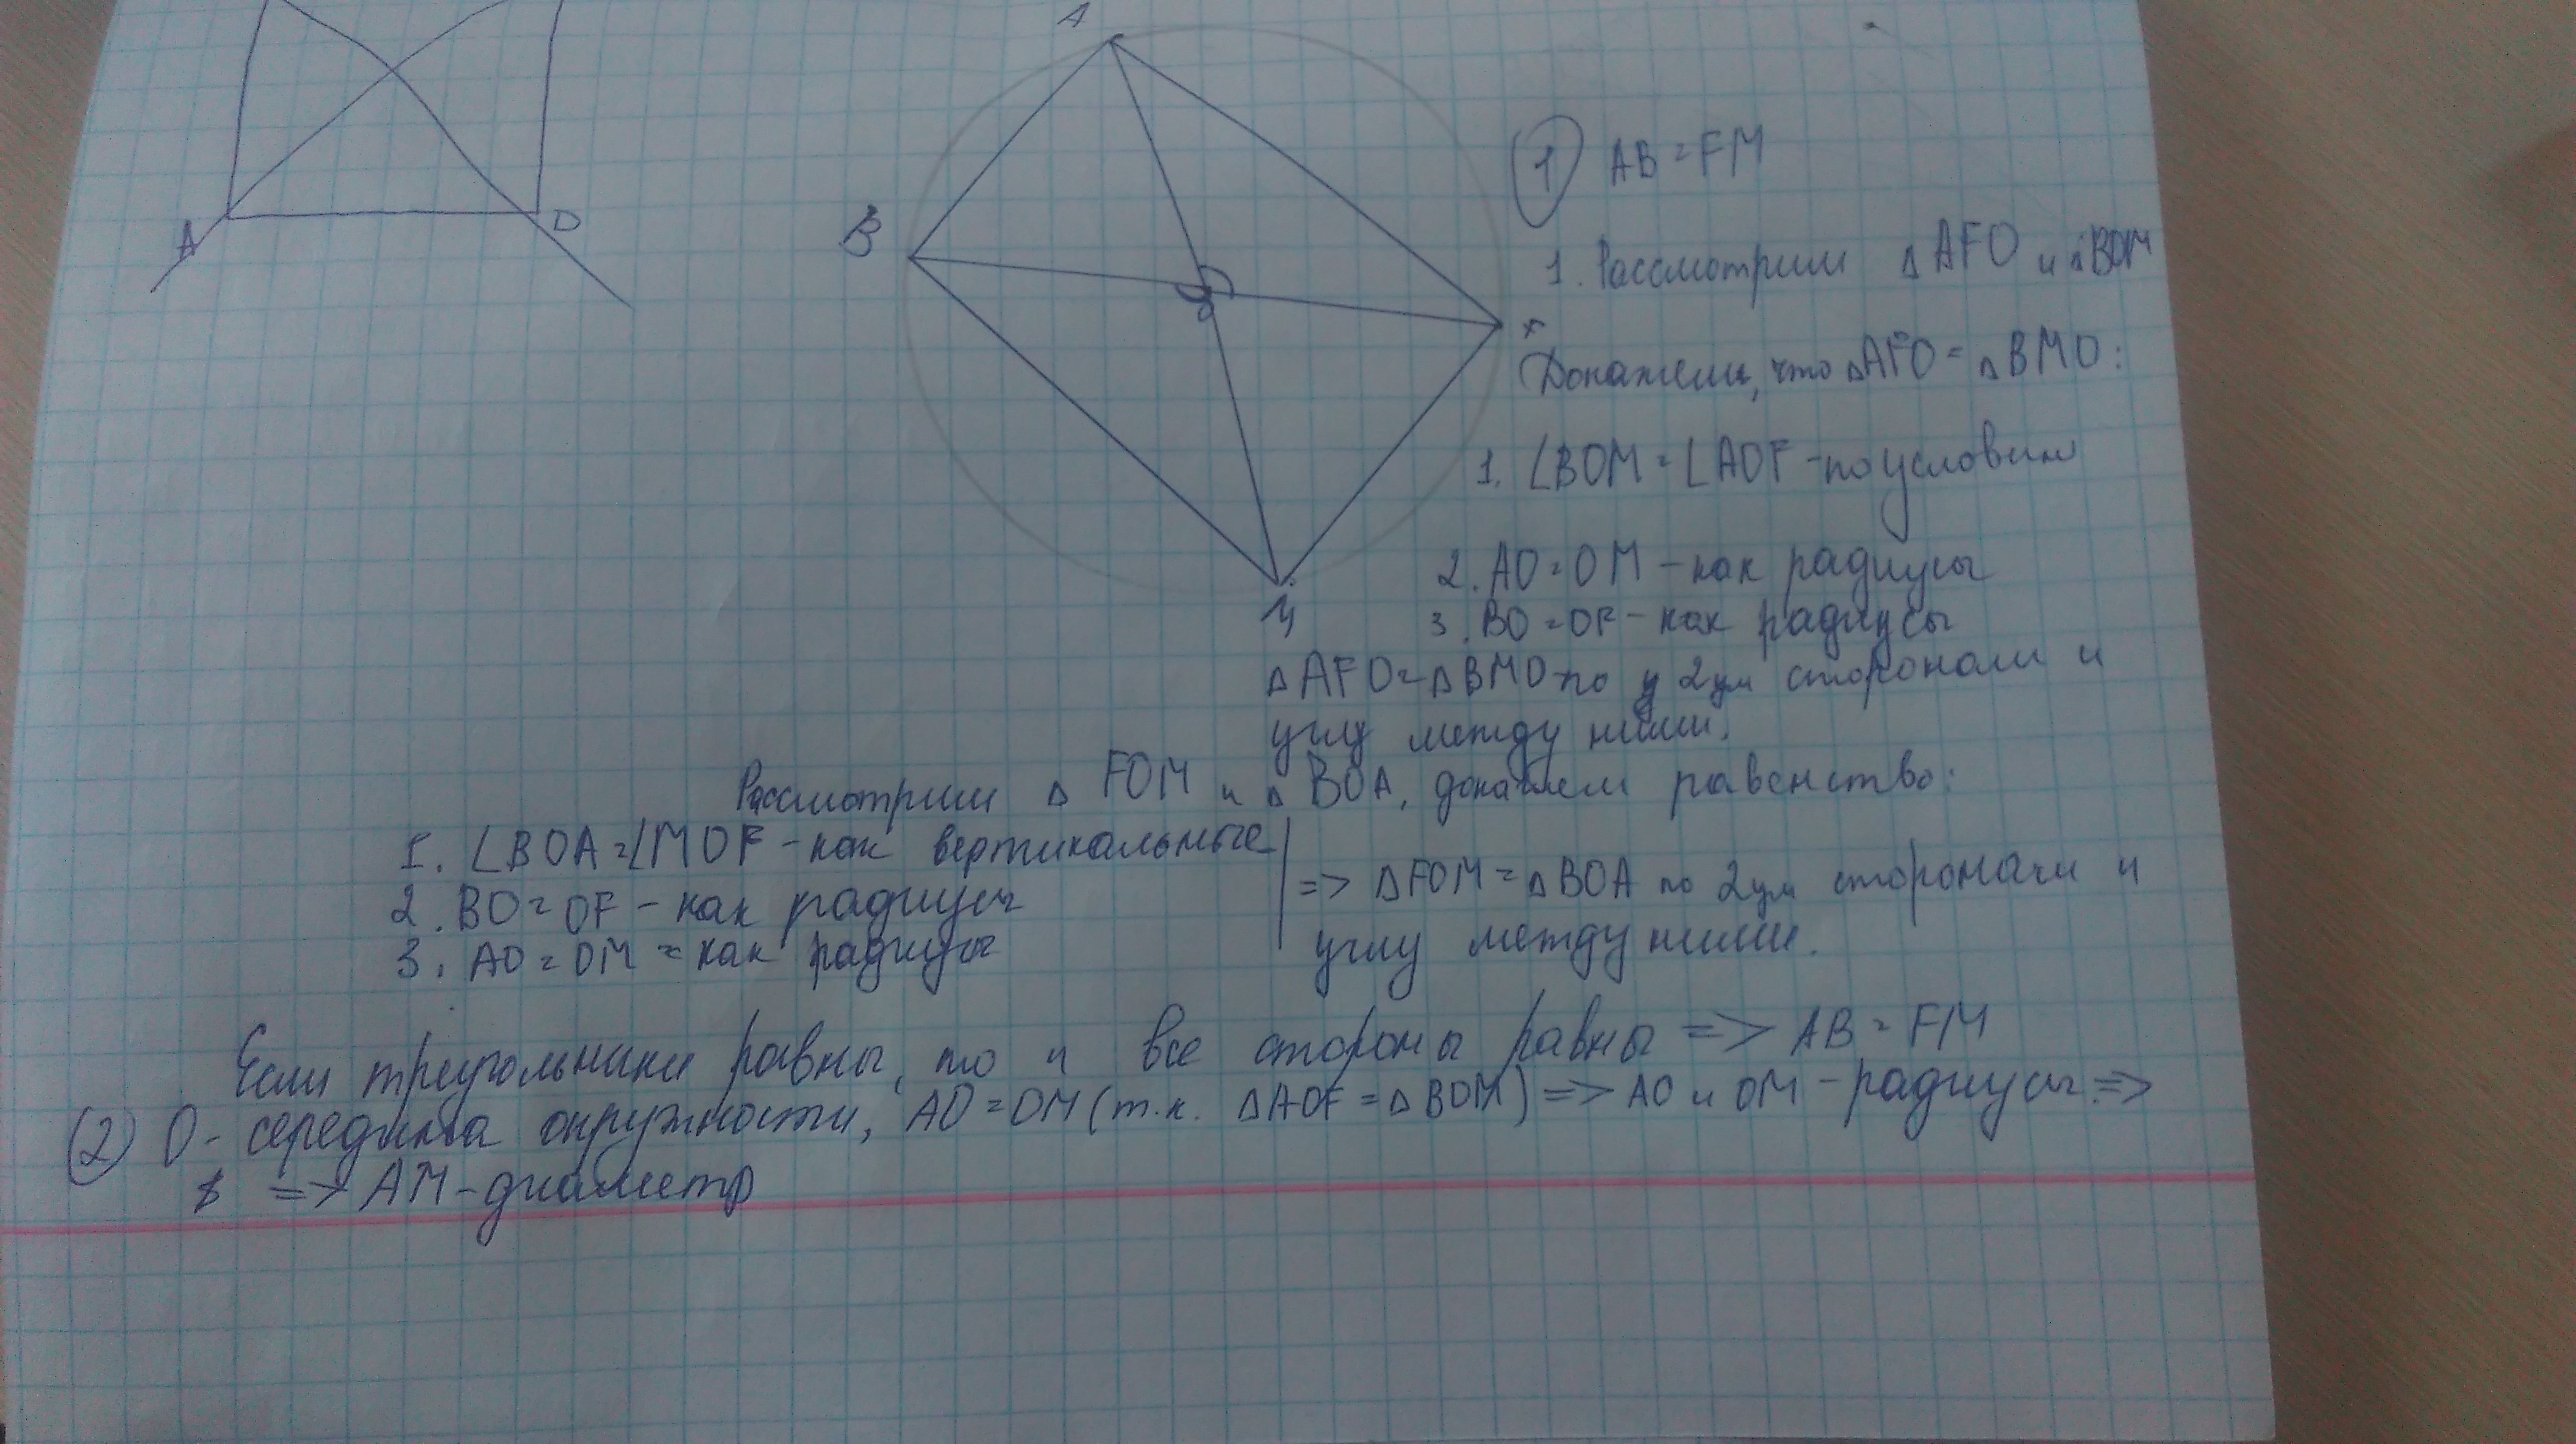 A
A
D
B
O
F
М
① AB = FM
1. Рассмотрим △ AFO и △BOM
Докажем, что △AFO = △BMO:
1. ∠BOM = ∠AOF - по условию
2. AO = OM - как радиусы
3. BO = OF - как радиусы
△AFO = △BMO по 2ум сторонам и
углу между ними.
Рассмотрим △ FOM и △ BOA, докажем равенство:
1. ∠BOA = ∠MOF - как вертикальные
2. BO = OF - как радиусы
3. AO = OM = как радиусы
=> △FOM = △BOA по 2ум сторонами и
углу между ними.
Если треугольники равны, то и все стороны равны => AB = FM
(2) O - середина окружности, AO = OM (т.к. △AOF = △BOM) => AO и OM - радиусы =>
=> AM - диаметр